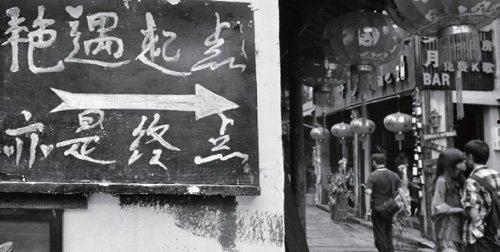 艳遇起点
亦是终点
月
BAR
房
K歌